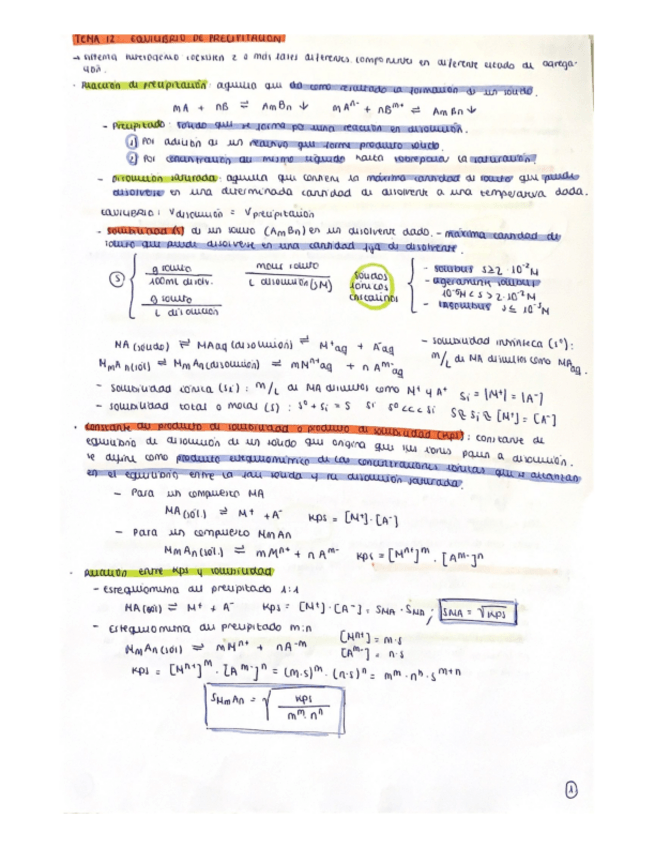 TEMA 12: EQUILIBRIO DE PRECIPITACIÓN
→ sistema heterogéneo coexisten 2 o más fases diferentes. componentes en diferente estado de agrega-
ción.
· Reacción de precipitación: aquella que da como resultado la formación de un sólido.
mA + nB ⇌ AmBn ↓   mAⁿ⁻ + nBᵐ⁺ ⇌ AmBn ↓
- Precipitado: sólido que se forma por una reacción en disolución.
① Por adición de un reactivo que forme producto sólido.
② Por concentración del mismo líquido hasta sobrepasar la saturación.
- Disolución saturada: aquella que contiene la máxima cantidad de soluto que puede
disolverse en una determinada cantidad de disolvente a una temperatura dada.
EQUILIBRIO: Vdisolución = Vprecipitación
- Solubilidad (s) de un soluto (AmBn) en un disolvente dado. - máxima cantidad de
soluto que puede disolverse en una cantidad fija de disolvente.
Ⓢ { g soluto / 100mL disolv.   moles soluto / L disolución (s M)
g soluto / L disolución
sólidos iónicos cristalinos {
- solubles s≥2·10⁻² M
- ligeramente solubles
10⁻⁵M < s > 2·10⁻² M
- insolubles s ≤ 10⁻⁵ M
MA (sólido) ⇌ MAaq (disolución) ⇌ M⁺aq + A⁻aq   - solubilidad intrínseca (s⁰):
MmAn(sól) ⇌ MmAn(disolución) ⇌ mMⁿ⁺aq + nAᵐ⁻aq   m/L de MA disueltos como MAaq.
- solubilidad iónica (si): m/L de MA disueltos como M⁺ y A⁺   si = |M⁺| = |A⁻|
- solubilidad total o molar (s): s⁰ + si = s   si s⁰ <<< si   s≈ si ≈ [M⁺] = [A⁻]
· Constante del producto de solubilidad o producto de solubilidad (Kps): constante de
equilibrio de disolución de un sólido que origina que sus iones pasen a disolución.
se define como producto estequiométrico de las concentraciones iónicas que se alcanzan
en el equilibrio entre la sal sólida y su disolución saturada.
- Para un compuesto MA
MA (sól.) ⇌ M⁺ + A⁻   Kps = [M⁺]·[A⁻]
- Para un compuesto MmAn
MmAn(sól.) ⇌ mMⁿ⁺ + nAᵐ⁻   Kps = [Mⁿ⁺]ᵐ · [Aᵐ⁻]ⁿ
· Relación entre Kps y solubilidad
- Estequiometría del precipitado 1:1
MA (sól) ⇌ M⁺ + A⁻   Kps = [M⁺]·[A⁻] = SMA · SMA ; SMA = √Kps
- Estequiometría del precipitado m:n
MmAn(sól) ⇌ mMⁿ⁺ + nA⁻ᵐ   [Mⁿ⁺] = m·s
[Aᵐ⁻] = n·s
Kps = [Mⁿ⁺]ᵐ · [Aᵐ⁻]ⁿ = (m·s)ᵐ · (n·s)ⁿ = mᵐ · nⁿ · sᵐ⁺ⁿ
SMmAn = √(Kps / mᵐ · nⁿ)
①